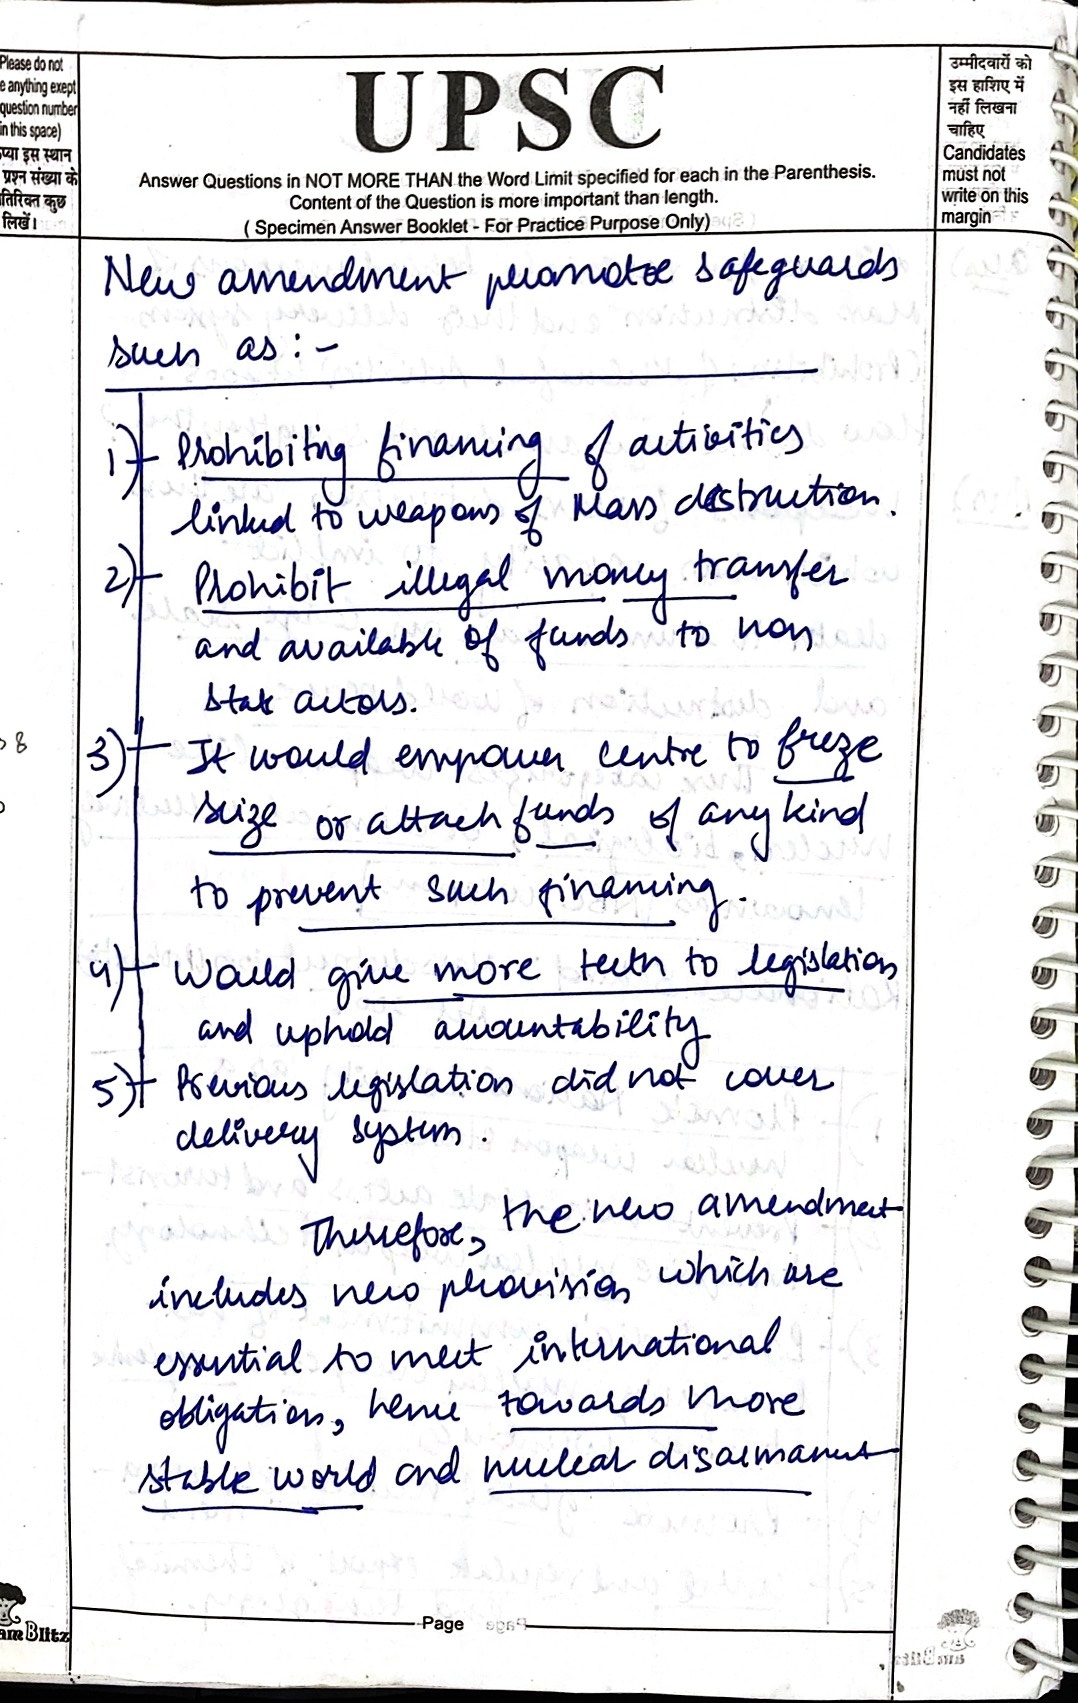 Please do not
e anything exept
question number
in this space)
प्या इस स्थान
प्रश्न संख्या के
तिरिक्त कुछ
लिखें।
UPSC
Answer Questions in NOT MORE THAN the Word Limit specified for each in the Parenthesis.
Content of the Question is more important than length.
( Specimen Answer Booklet - For Practice Purpose Only)
उम्मीदवारों को
इस हाशिए में
नहीं लिखना
चाहिए
Candidates
must not
write on this
margin
New amendment promote safeguards
such as :-
1) Prohibiting financing of activities
linked to weapons of Mass destruction.
2) Prohibit illegal money transfer
and available of funds to non
state actors.
3) It would empower centre to freze
seize or attach funds of any kind
to prevent such financing.
4) Would give more teeth to legislation
and uphold accountability
5) Previous legislation did not cover
delivery system.
Therefore, the new amendment
includes new provision which are
essential to meet international
obligation, hence towards more
stable world and nuclear disarmament
Page
am Blitz